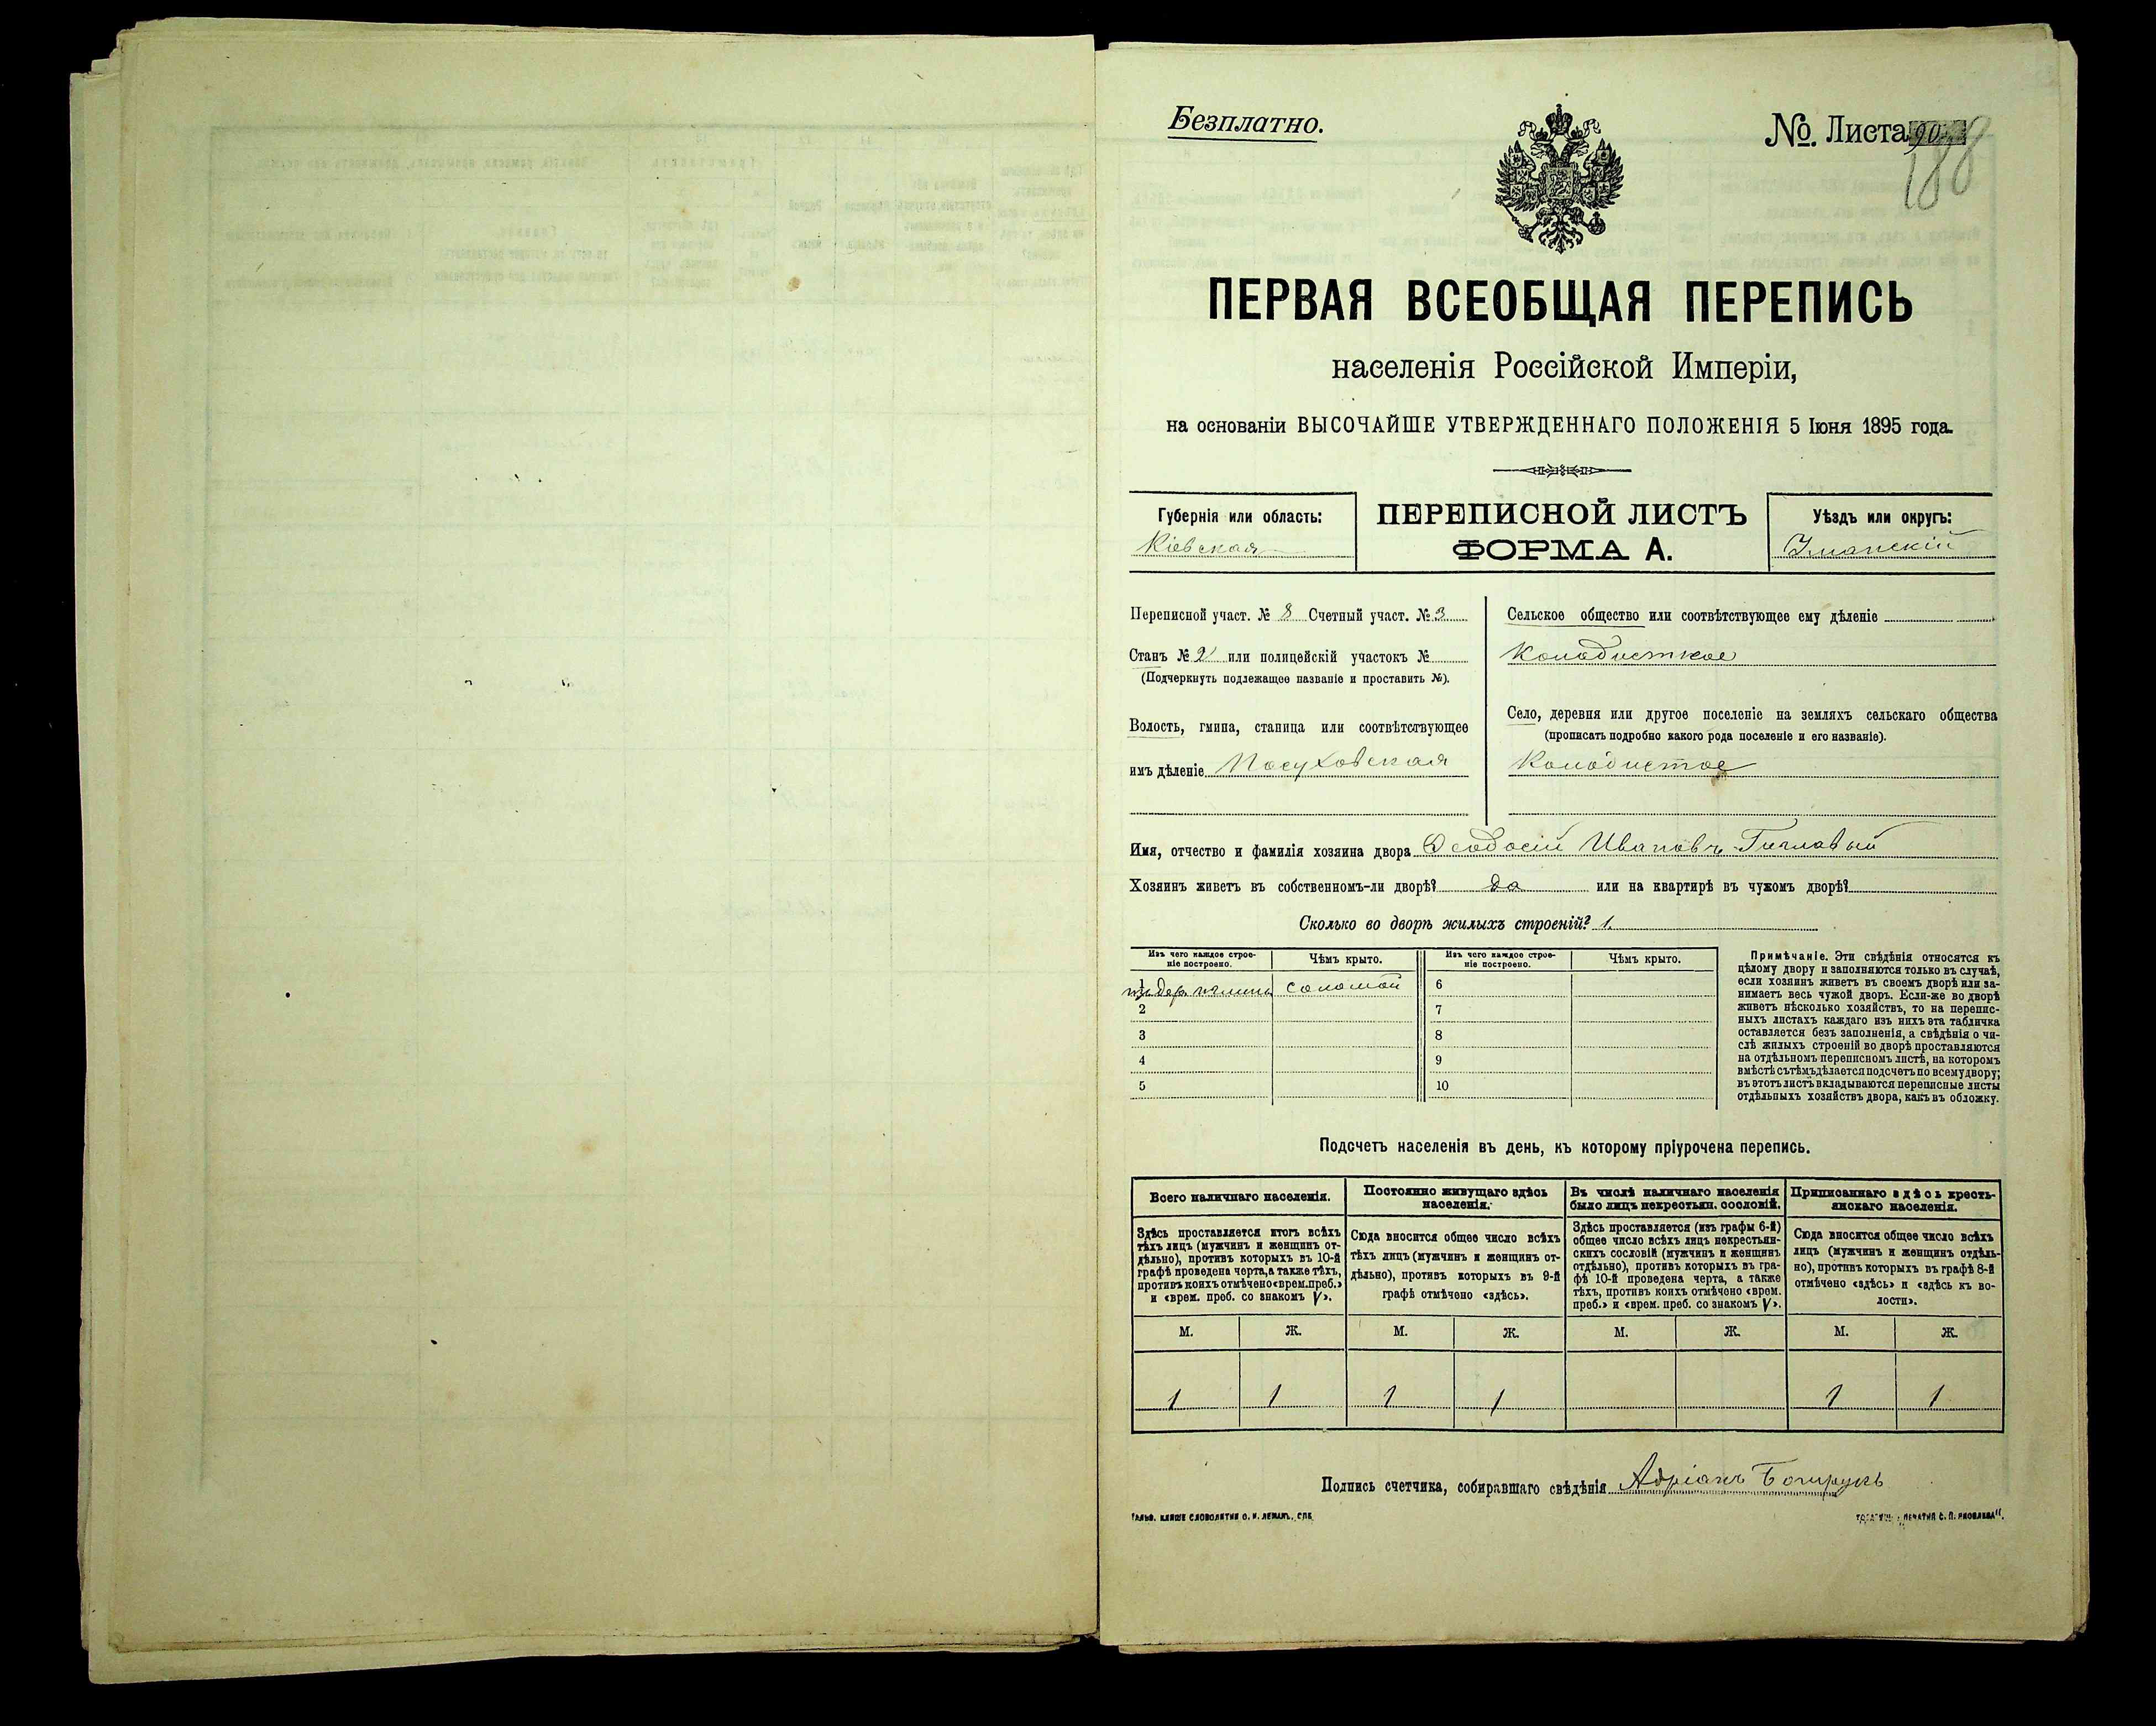 Безплатно.
№. Листа 90
188
ПЕРВАЯ ВСЕОБЩАЯ ПЕРЕПИСЬ
населенія Россійской Имперіи,
на основаніи ВЫСОЧАЙШЕ УТВЕРЖДЕННАГО ПОЛОЖЕНІЯ 5 Іюня 1895 года.
Губернія или область:
Кіевская
ПЕРЕПИСНОЙ ЛИСТЪ
ФОРМА А.
Уѣздъ или округъ:
Уманскій
Переписной участ. № 8 Счетный участ. № 3
Станъ № 2 или полицейскій участокъ №
(Подчеркнуть подлежащее названіе и проставить №).
Волость, гмина, станица или соотвѣтствующее
имъ дѣленіе Посуховская
Сельское общество или соотвѣтствующее ему дѣленіе
Колодисткое
Село, деревня или другое поселеніе на земляхъ сельскаго общества
(прописать подробно какого рода поселеніе и его названіе).
Колодистое
Имя, отчество и фамилія хозяина двора Ѳеодосій Ивановъ
Хозяинъ живетъ въ собственномъ-ли дворѣ? да или на квартирѣ въ чужомъ дворѣ?
Сколько во дворѣ жилыхъ строеній? 1.
Изъ чего каждое строеніе построено.
Чѣмъ крыто.
Изъ чего каждое строеніе построено.
Чѣмъ крыто.
1 изъ дер. и глины соломой 6
2 7
3 8
4 9
5 10
Примѣчаніе. Эти свѣдѣнія относятся къ
цѣлому двору и заполняются только въ случаѣ,
если хозяинъ живетъ въ своемъ дворѣ или за-
нимаетъ весь чужой дворъ. Если-же во дворѣ
живетъ нѣсколько хозяйствъ, то на перепис-
ныхъ листахъ каждаго изъ нихъ эта табличка
оставляется безъ заполненія, а свѣдѣнія о чи-
слѣ жилыхъ строеній во дворѣ проставляются
на отдѣльномъ переписномъ листѣ, на которомъ
вмѣстѣ съ тѣмъ дѣлается подсчетъ по всему двору;
въ этотъ листъ вкладываются переписные листы
отдѣльныхъ хозяйствъ двора, какъ въ обложку.
Подсчетъ населенія въ день, къ которому пріурочена перепись.
Всего наличнаго населенія.
Здѣсь проставляется итогъ всѣхъ
тѣхъ лицъ (мужчинъ и женщинъ от-
дѣльно), противъ которыхъ въ 10-й
графѣ проведена черта, а также тѣхъ,
противъ коихъ отмѣчено «врем. преб.»
и «врем. преб. со знакомъ V».
Постоянно живущаго здѣсь
населенія.
Сюда вносится общее число всѣхъ
тѣхъ лицъ (мужчинъ и женщинъ от-
дѣльно), противъ которыхъ въ 9-й
графѣ отмѣчено «здѣсь».
Въ числѣ наличнаго населенія
было лицъ некрестьян. сословій.
Здѣсь проставляется (изъ графы 6-й)
общее число всѣхъ лицъ некрестьян-
скихъ сословій (мужчинъ и женщинъ
отдѣльно), противъ которыхъ въ гра-
фѣ 10-й проведена черта, а также
тѣхъ, противъ коихъ отмѣчено «врем.
преб.» и «врем. преб. со знакомъ V».
Приписаннаго здѣсь кресть-
янскаго населенія.
Сюда вносится общее число всѣхъ
лицъ (мужчинъ и женщинъ отдѣль-
но), противъ которыхъ въ графѣ 8-й
отмѣчено «здѣсь» и «здѣсь къ во-
лости».
М. Ж. М. Ж. М. Ж. М. Ж.
1 1 1 1 1 1
Подпись счетчика, собиравшаго свѣдѣнія Адріанъ